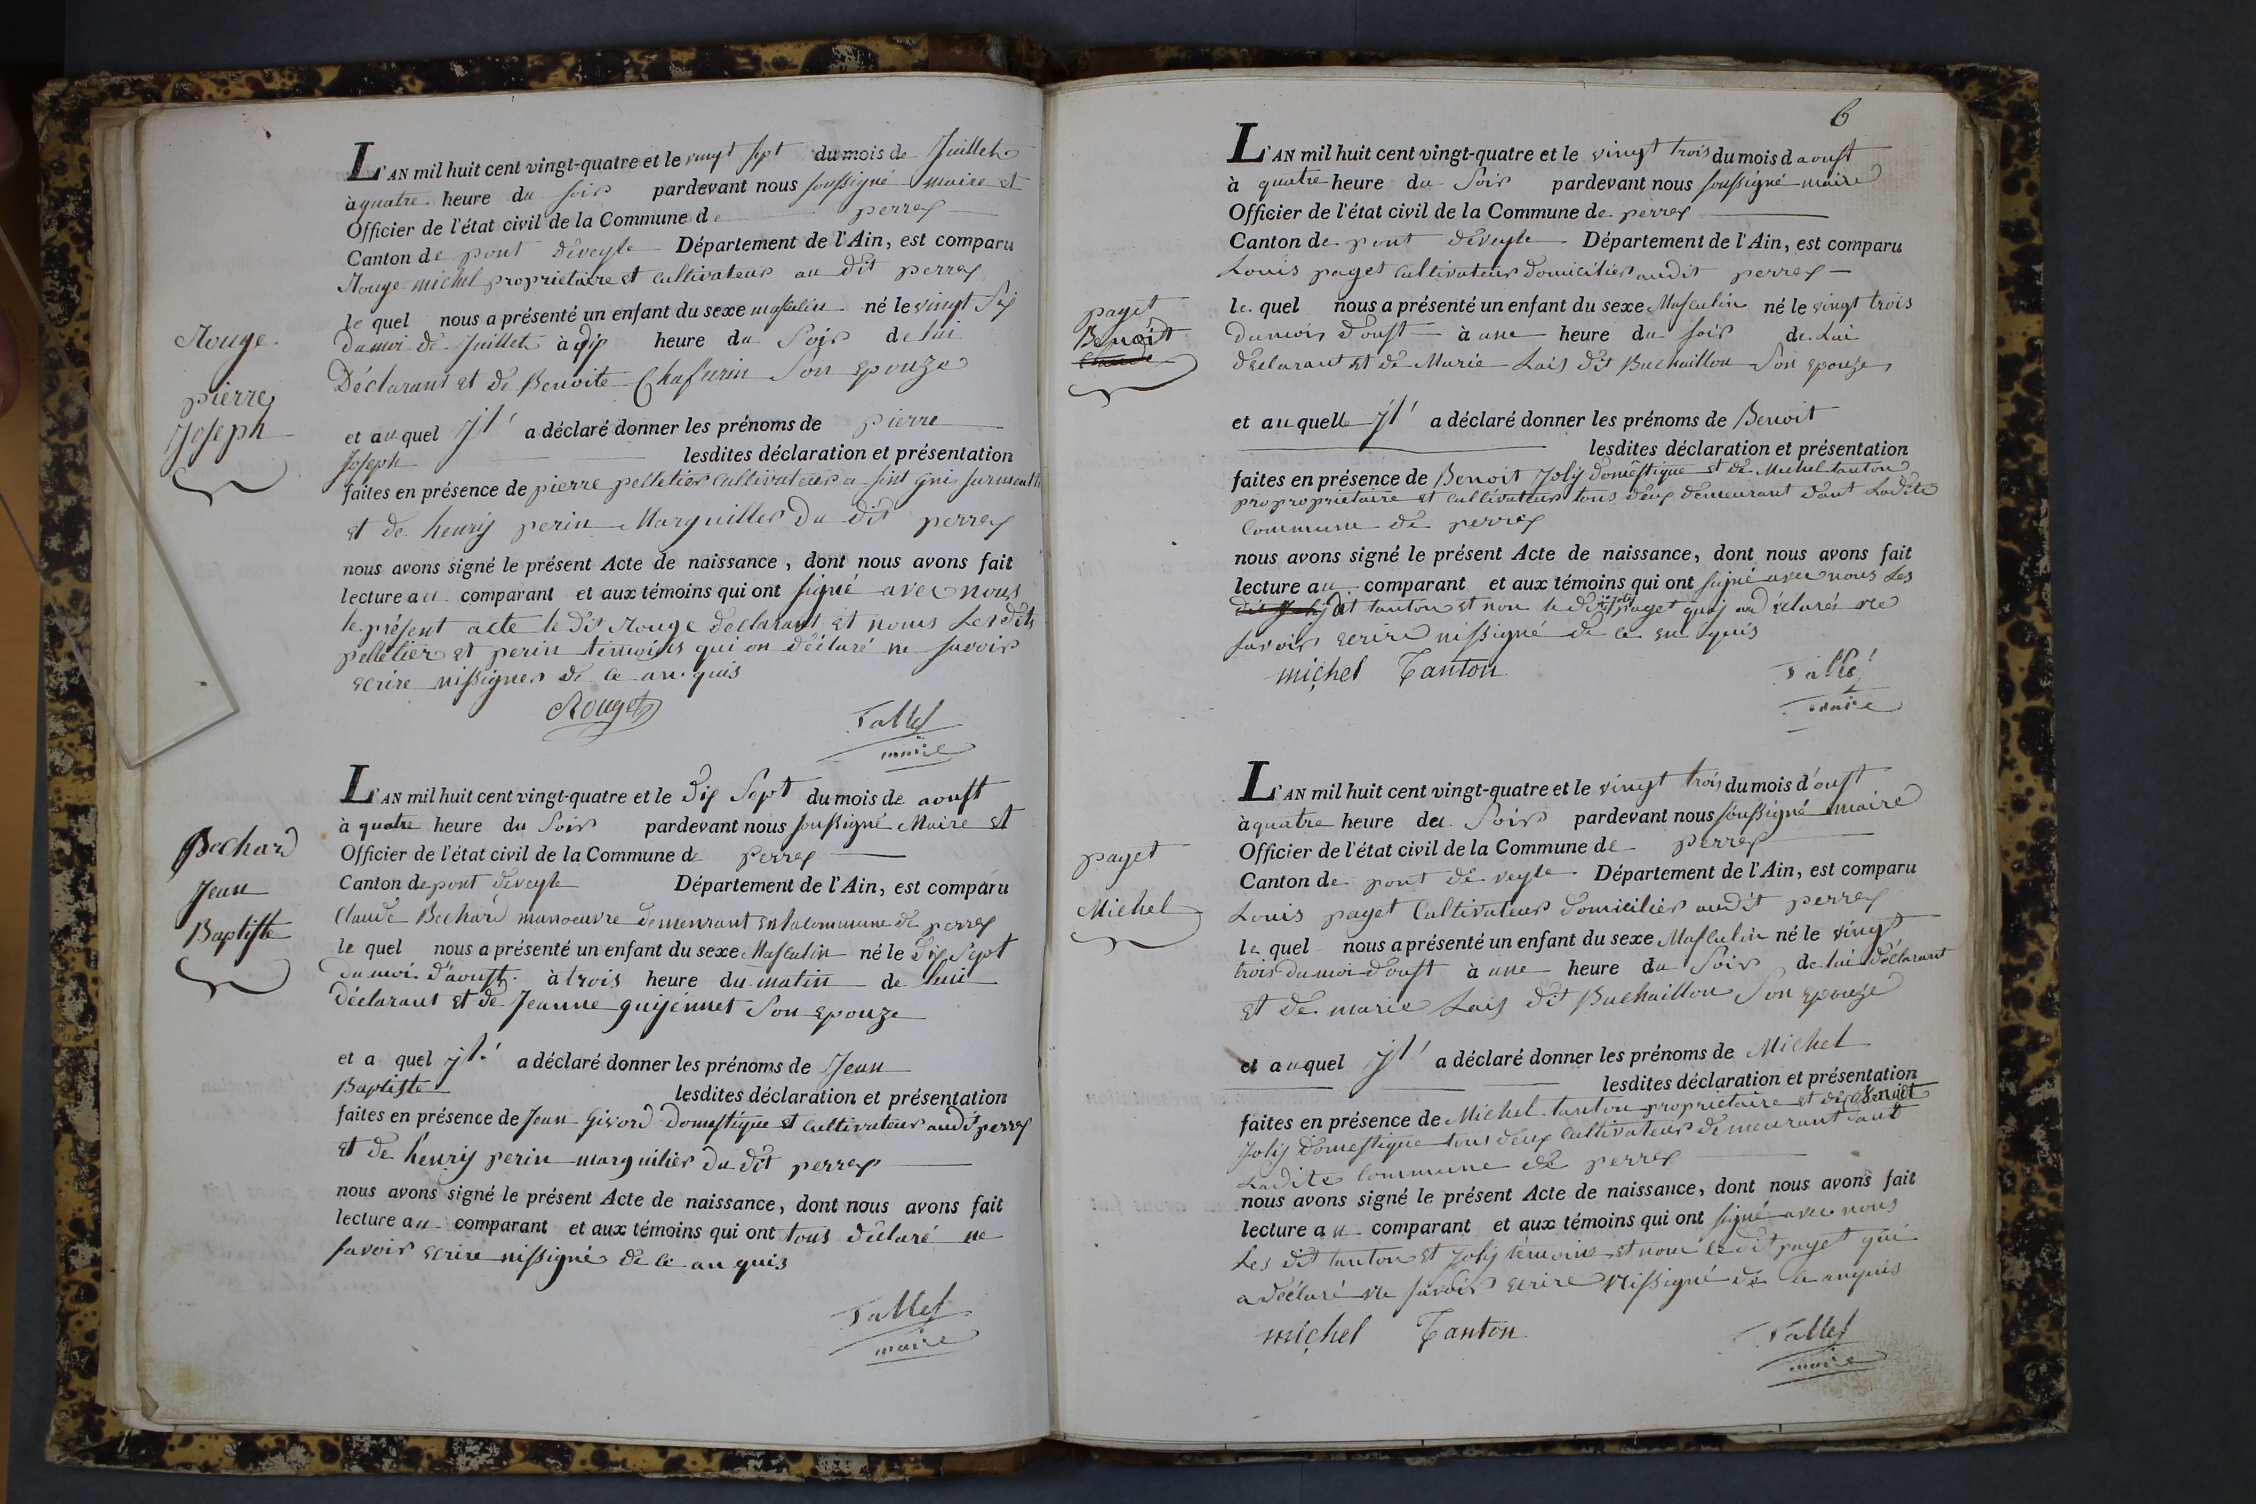 Rouge
pierre
Joseph
L'AN mil huit cent vingt-quatre et le vingt sept du mois de Juillet
à quatre heure du soir pardevant nous soussigné maire et
Officier de l'état civil de la Commune de perrex
Canton de pont deveyle Département de l'Ain, est comparu
Rouge michel proprietaire et cultivateur au dit perrex
le quel nous a présenté un enfant du sexe masculin né le vingt six
du moi de Juillet à dix heure du soir de lui
Déclarant et de Benoite Son epouze
et au quel jl a déclaré donner les prénoms de pierre
Joseph lesdites déclaration et présentation
faites en présence de pierre pelletier cultivateur a
et de henrij perin Marguiller du dit perrex
nous avons signé le présent Acte de naissance, dont nous avons fait
lecture au comparant et aux témoins qui ont signé avec nous
le présent acte le dit Rouge déclarant et nous Les dits
pelletier et perin temoins qui on déclaré ne savoir
ecrire nissigner de ce anquis
Rouget
Tallet
maire
Bechard
Jean
Baptiste
L'AN mil huit cent vingt-quatre et le dix sept du mois de aoust
à quatre heure du soir pardevant nous soussigné Maire et
Officier de l'état civil de la Commune de perrex
Canton de pont deveyle Département de l'Ain, est comparu
Claude Bechard manoeuvre demeurant en la commune de perrex
le quel nous a présenté un enfant du sexe Masculin né le dix sept
du moi d'aoust à trois heure du matin de lui
déclarant et de Jeanne guijennet Son epouze
et a quel jl a déclaré donner les prénoms de Jean
Baptiste lesdites déclaration et présentation
faites en présence de Jean Givord domestique et cultivateur audit perrex
et de henrij perin marguilier du dit perrex
nous avons signé le présent Acte de naissance, dont nous avons fait
lecture au comparant et aux témoins qui ont tous déclaré ne
savoir ecrire nissigné de ce anquis
Tallet
maire
6
paget
Benoit
Claude
L'AN mil huit cent vingt-quatre et le vingt trois du mois d aoust
à quatre heure du soir pardevant nous soussigné maire
Officier de l'état civil de la Commune de perrex
Canton de pont deveyle Département de l'Ain, est comparu
Louis paget cultivateur domicilier audit perrex
le quel nous a présenté un enfant du sexe Masculin né le vingt trois
du mois d'oust à une heure du soir de Lui
déclarant et de Marie Lais dit Buchaillon Son epouze
et au quelle jl a déclaré donner les prénoms de Benoit
lesdites déclaration et présentation
faites en présence de Benoit Jolij domestique et de Michel tanton
proproprietaire et cultivateur tous deux demeurant dant Ladite
Commune de perrex
nous avons signé le présent Acte de naissance, dont nous avons fait
lecture au comparant et aux témoins qui ont signé avec nous Les
dit tanton et non le dit paget quij a déclaré ne
savoir ecrire nissigné de ce enquis
michel Tanton
Tallet
maire
paget
Michel
L'AN mil huit cent vingt-quatre et le vingt trois du mois d'oust
à quatre heure du soir pardevant nous soussigné maire
Officier de l'état civil de la Commune de perrex
Canton de pont de veyle Département de l'Ain, est comparu
Louis paget Cultivateur domicilier audit perrex
le quel nous a présenté un enfant du sexe Masculin né le vingt
trois du moi d'oust à une heure du soir de lui déclarant
et de marie Lais dit Buchaillon Son epouze
et au quel jl a déclaré donner les prénoms de Michel
lesdites déclaration et présentation
faites en présence de Michel tanton proprietaire et de Benoit
Jolij domestique tous deux cultivateur demeurant dant
Ladite Commune de perrex
nous avons signé le présent Acte de naissance, dont nous avons fait
lecture au comparant et aux témoins qui ont signé avec nous
Les dit tanton et Jolij temoins et non le dit paget qui
a déclaré ne savoir ecrire nissigné de ce anquis
michel Tanton
Tallet
maire